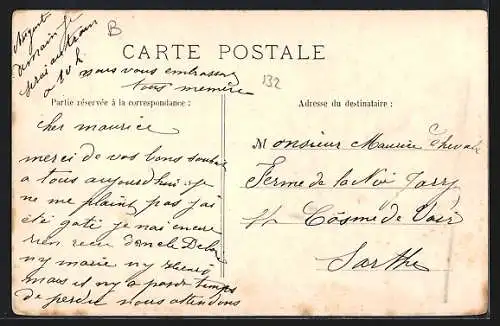 August
demain je
serai au train
a 10 h
B
CARTE POSTALE
nous vous embrassons
tous memère
132
Partie réservée à la correspondance :
Adresse du destinataire :
cher maurice
merci de vos bons souhaits
a tous aujourd'hui je
ne me plaint pas j'ai
été gaté je n'ai encore
rien recu
ny marie ny
mais il ny a pas de temps
de perdu nous attendons
Monsieur Maurice Cheval
Ferme de la Noi Jarry
St Cosme de Vair
Sarthe